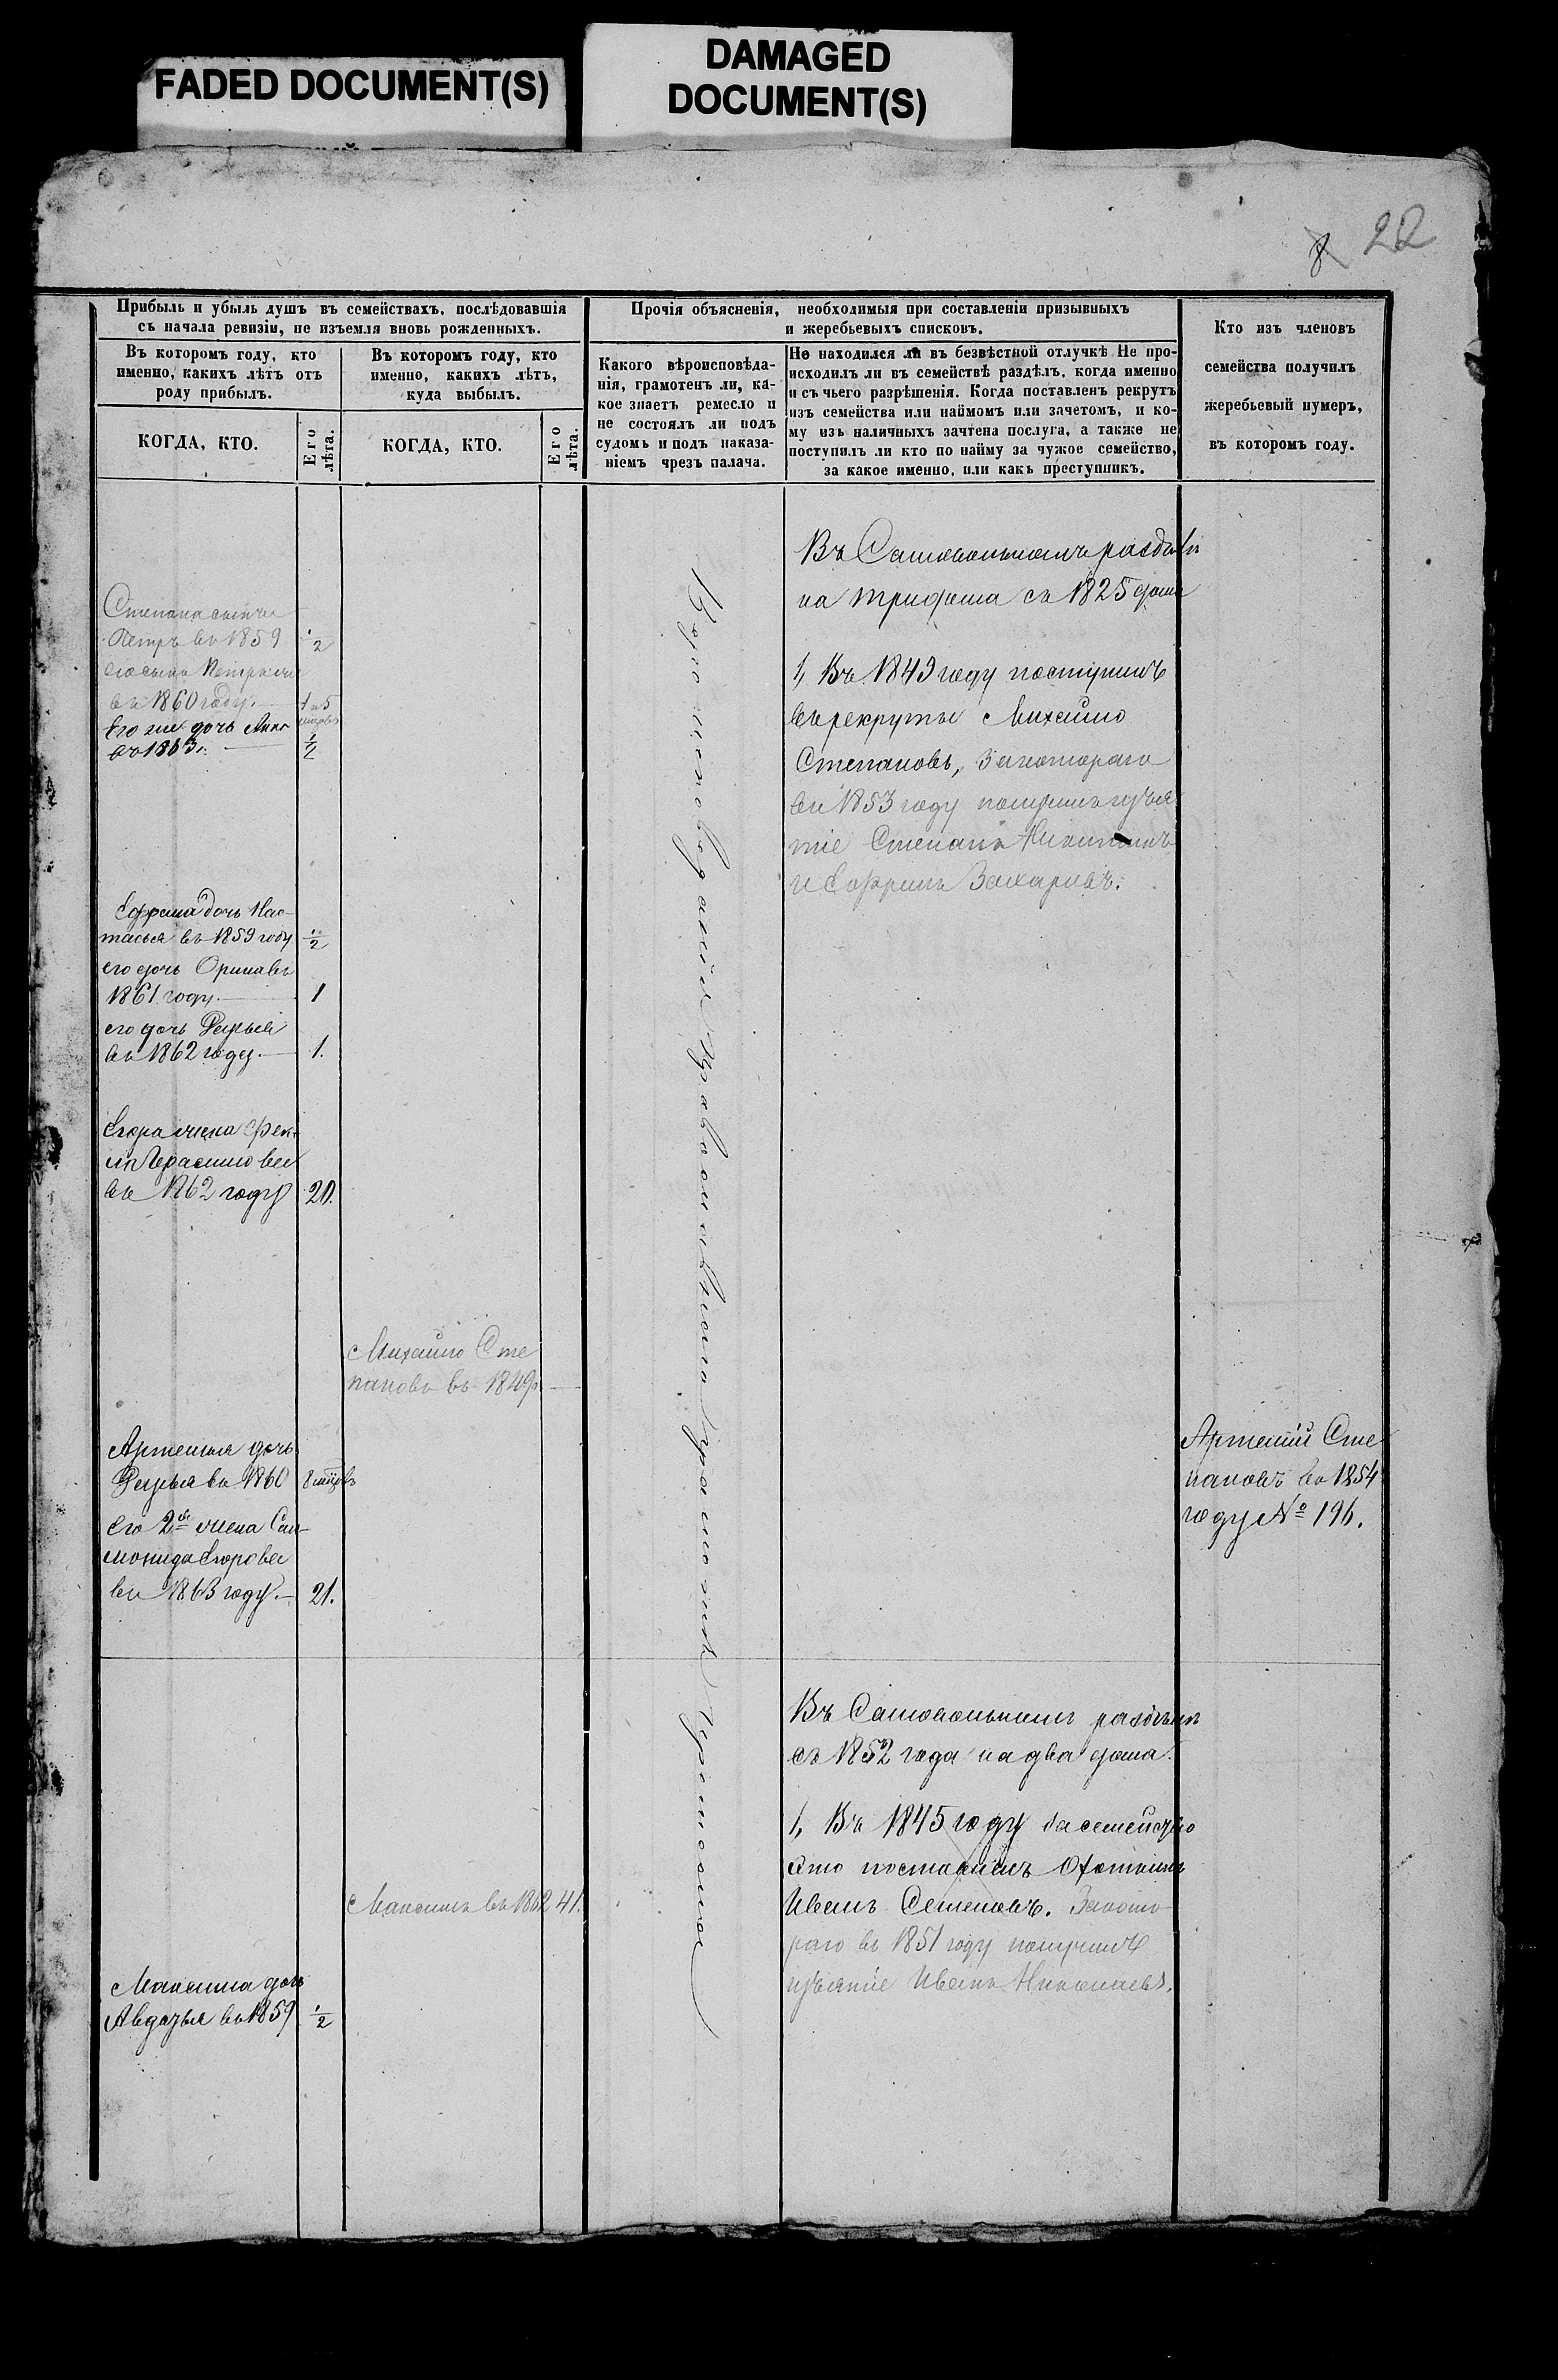 FADED DOCUMENT(S)
DAMAGED
DOCUMENT(S)
8 22
Прибыль и убыль душъ въ семействахъ, послѣдовавшія
съ начала ревизіи, не изъемля вновь рожденныхъ.
Въ которомъ году, кто
именно, какихъ лѣтъ отъ
роду прибылъ.
КОГДА, КТО.
Его
лѣта.
Въ которомъ году, кто
именно, какихъ лѣтъ,
куда выбылъ.
КОГДА, КТО.
Его
лѣта.
Прочія объясненія, необходимыя при составленіи призывныхъ
и жеребьевыхъ списковъ.
Какого вѣроисповѣда-
нія, грамотенъ ли, ка-
кое знаетъ ремесло и
не состоялъ ли подъ
судомъ и подъ наказа-
ніемъ чрезъ палача.
Не находился ли въ безвѣстной отлучкѣ Не про-
исходилъ ли въ семействѣ раздѣлъ, когда именно
и съ чьего разрѣшенія. Когда поставленъ рекрутъ
изъ семейства или наймомъ или зачетомъ, и ко-
му изъ наличныхъ зачтена послуга, а также не
поступилъ ли кто по найму за чужое семейство,
за какое именно, или какъ преступникъ.
Кто изъ членовъ
семейства получилъ
жеребьевый нумеръ,
въ которомъ году.
Степана сынъ
Петръ въ 1859 1/2
въ 1860 году.
Его же дочь Анна
въ 1863 г. 1/2
Ефрема дочь Нас-
тасья въ 1859 году 1/2
его дочь Орина въ
1861 году 1
его дочь Дарья
въ 1862 году 1.
Егора жена
Герасимова
въ 1862 году 20.
Михайло Сте
пановъ въ 1849
Артемья дочь
Дарья въ 1860
Его 2я жена Сан-
монида Егорова
въ 1863 году 21.
Максимъ въ 1862 41.
Максима дочь
Авдотья въ 1859 1/2
Вѣроисповѣданія Православнаго
Въ Самовольномъ раздѣлѣ
на три дома съ 1825 года
1, Въ 1849 году поступилъ
въ рекруты Михайло
Степановъ, за котораго
въ 1853 году получилъ изъя
тіе Степанъ Никитинъ
и Ефремъ Захаровъ.
Въ Самовольномъ раздѣлѣ
съ 1852 года на два дома.
1, Въ 1845 году за семейство
это поставленъ Охотникъ
Иванъ Семеновъ. За кото-
раго въ 1851 году получилъ
изъятіе Иванъ Николаевъ.
Артемій Сте
пановъ въ 1854
году № 196.